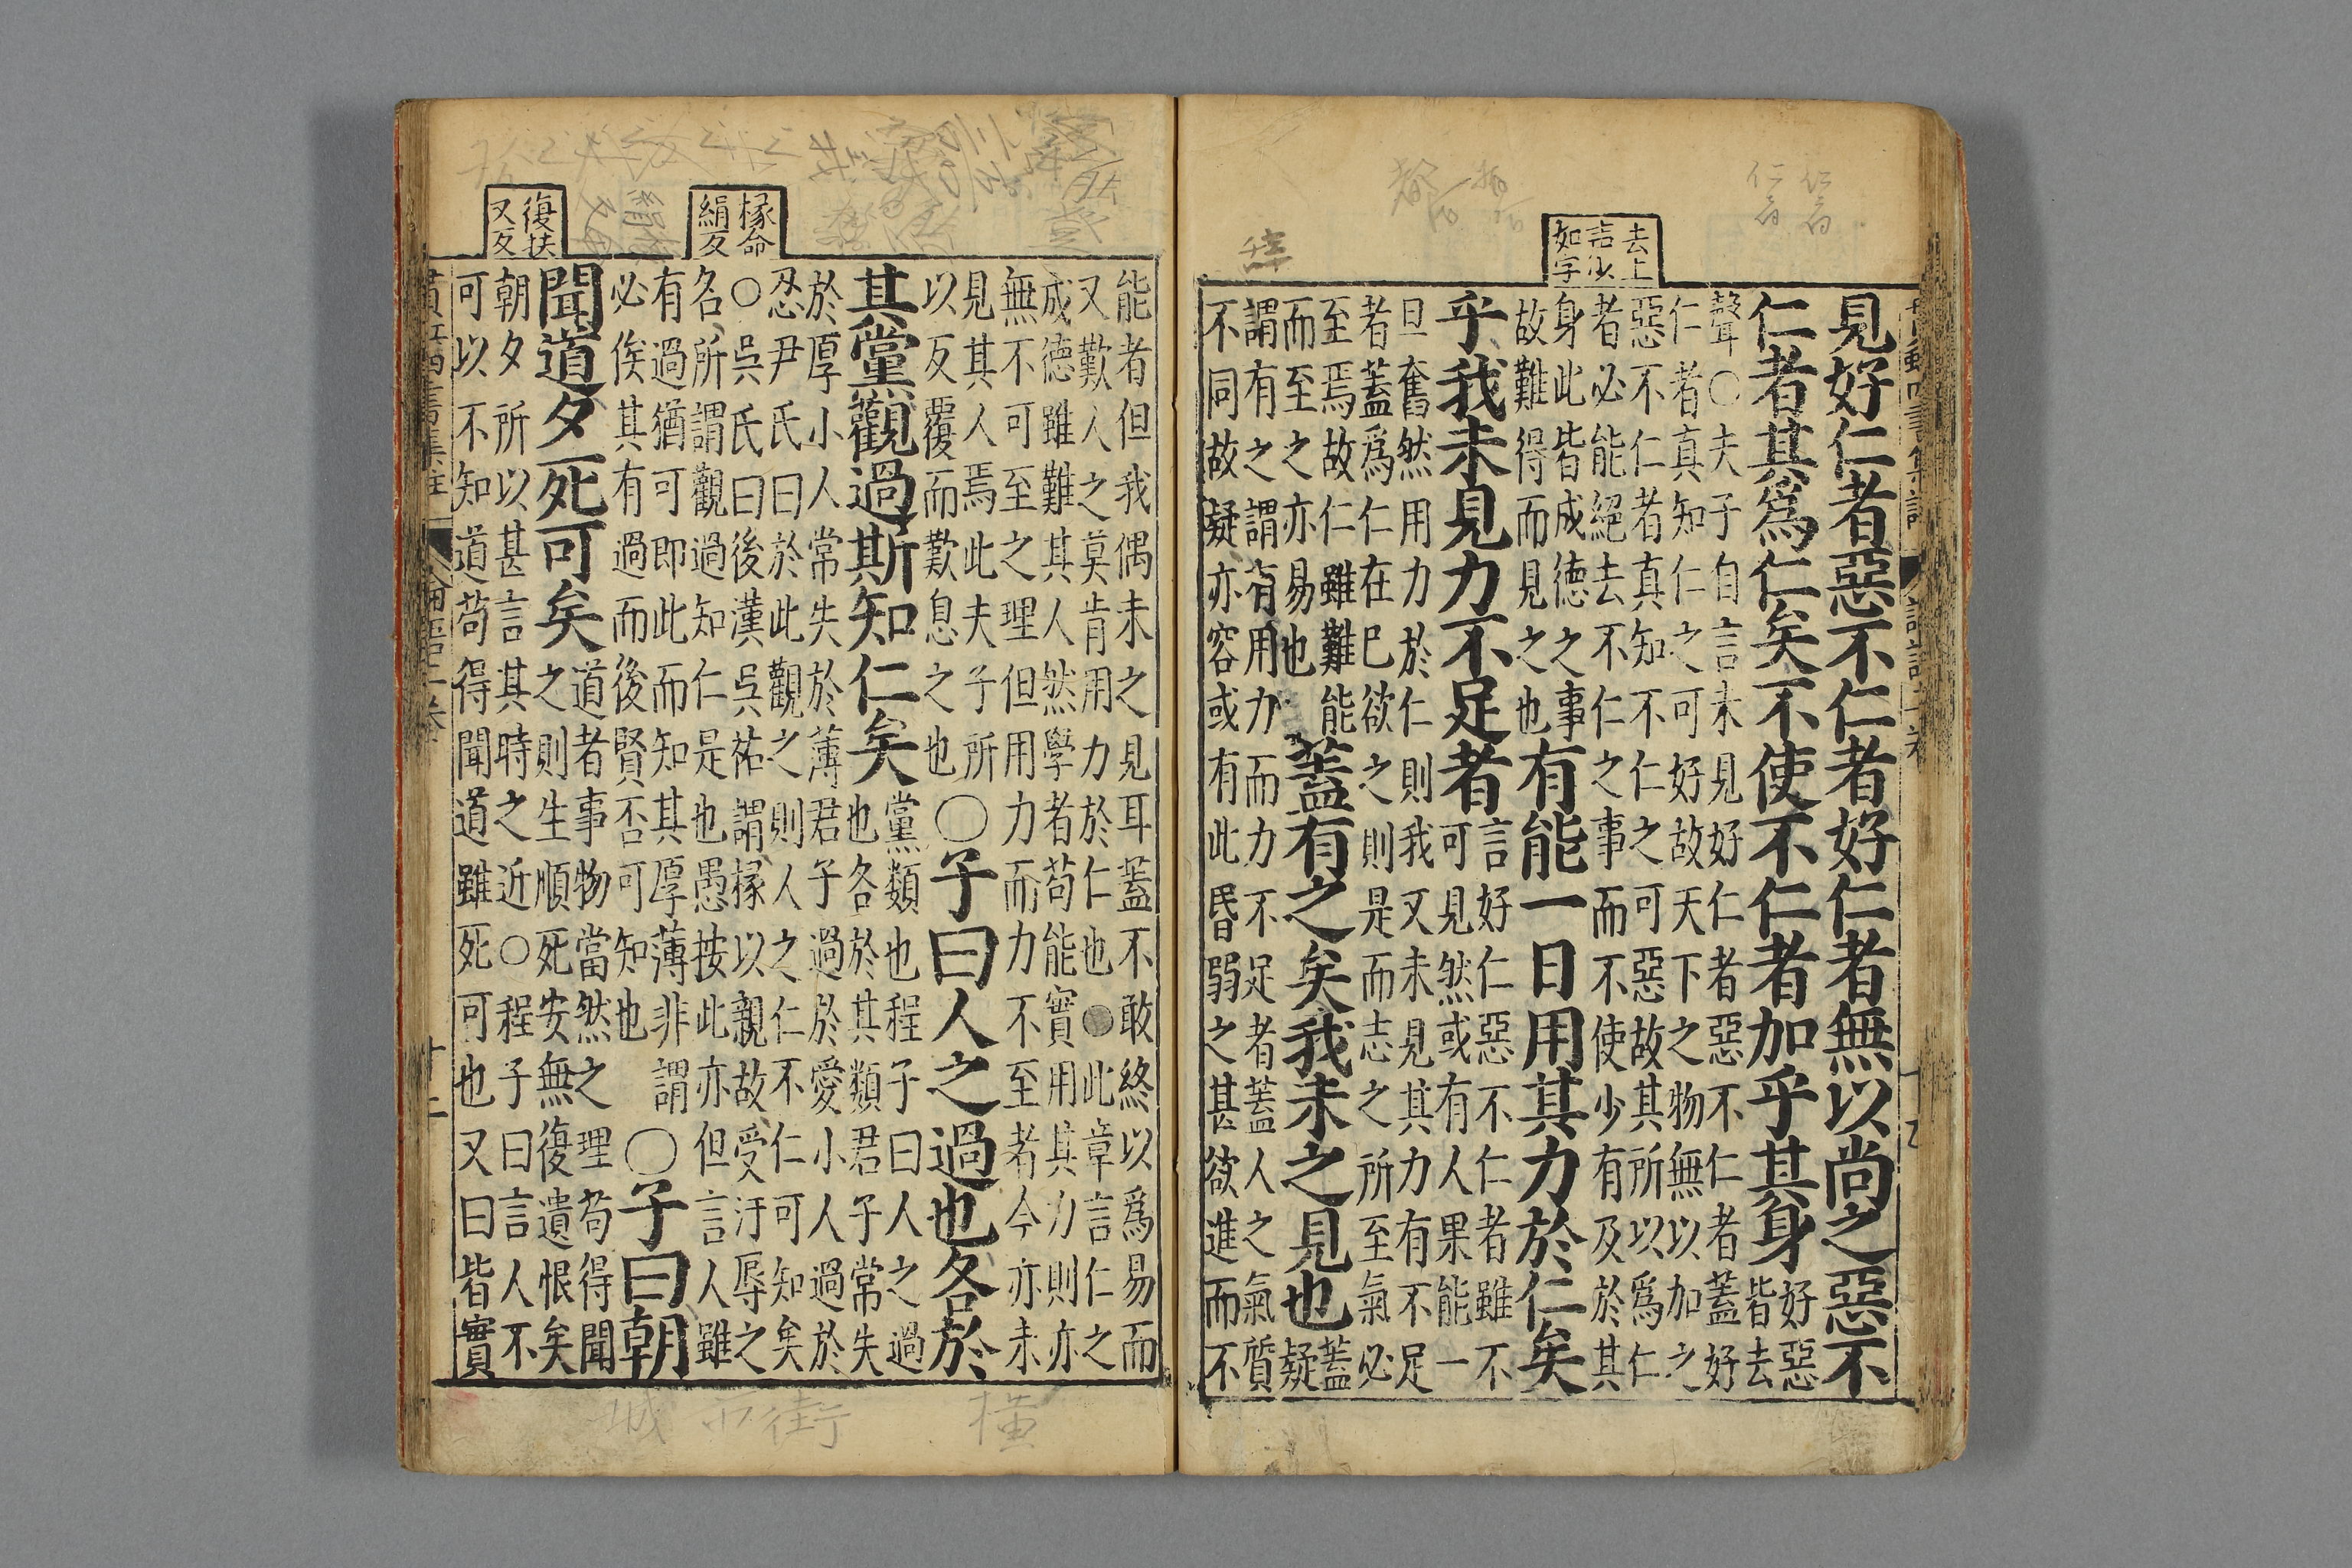 去上
聲次
如字
見好仁者惡不仁者好仁者無以尚之惡不
仁者其爲仁矣不使不仁者加乎其身
好惡
皆去
聲○夫子自言未見好仁者惡不仁者蓋好
仁者真知仁之可好故天下之物無以加之
惡不仁者真知不仁之可惡故其所以爲仁
者必能絕去不仁之事而不使少有及於其
身此皆成德之事
故難得而見之也
有能一日用其力於仁矣
乎我未見力不足者
言好仁惡不仁者雖不
可見然或有人果能一
旦奮然用力於仁則我又未見其力有不足
者蓋爲仁在已欲之則是而志之所至氣必
至焉故仁雖難能
而至之亦易也
蓋有之矣我未之見也
蓋
疑
謂有之謂有用力而力不足者蓋人之氣質
不同故疑亦容或有此昏弱之甚欲進而不
橡命
絹反
復扶
又反
能者但我偶未之見耳蓋不敢終以爲易而
又歎人之莫肯用力於仁也●此章言仁之
成德雖難其人然學者苟能實用其力則亦
無不可至之理但用力而力不至者今亦未
見其人焉此夫子所
以反覆而歎息之也
○子曰人之過也各於
其黨觀過斯知仁矣
黨類也程子曰人之過
也各於其類君子常失
於厚小人常失於薄君子過於愛小人過於
忍尹氏曰於此觀之則人之仁不仁可知矣
○吳氏曰後漢吳祐謂掾以親故受汙辱之
名所謂觀過知仁是也愚按此亦但言人雖
有過猶可即此而知其厚薄非謂
必俟其有過而後賢否可知也
○子曰朝
聞道夕死可矣
道者事物當然之理苟得聞
之則生順死安無復遺恨矣
朝夕所以甚言其時之近○程子曰言人不
可以不知道苟得聞道雖死可也又曰皆實
十二